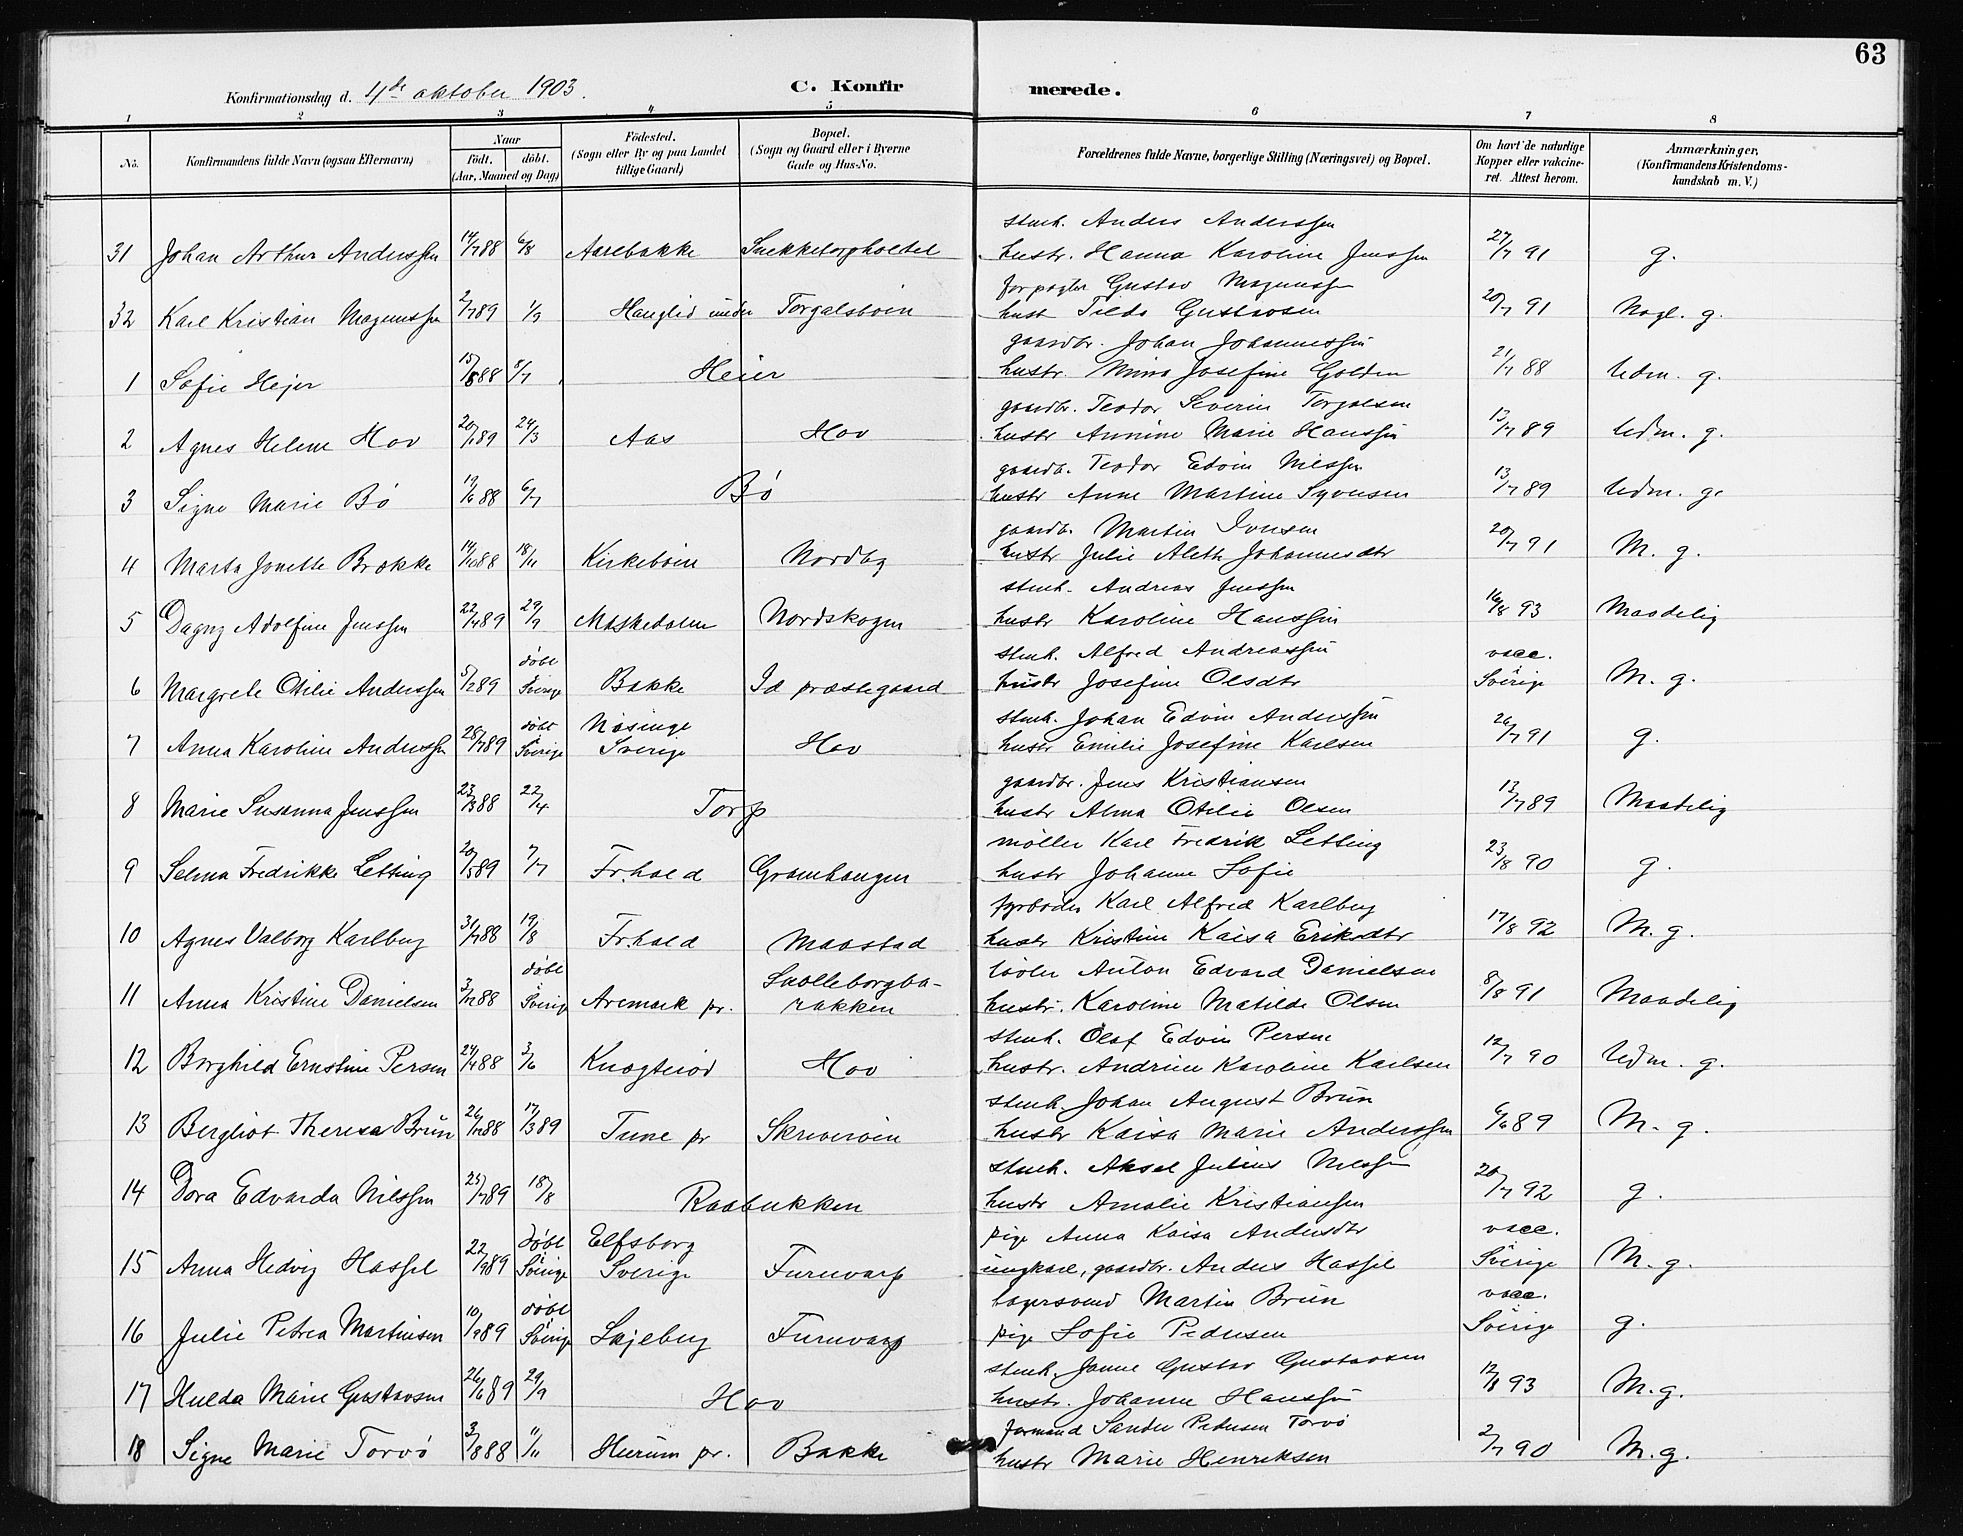 63
Konfirmationsdag d. 4de oktober 1903.
C. Konfirmerede.
1 2 3 4 5 6 7 8
No. Konfirmandens fulde Navn (ogsaa Efternavn) Naar födt. döbt. (Aar, Maaned og Dag) Födested. (Sogn eller By og paa Landet tillige Gaard) Bopæl. (Sogn og Gaard eller i Byerne Gade og Hus-No. Forældrenes fulde Navne, borgerlige Stilling (Næringsvei) og Bopæl. Om havt de naturlige Kopper eller vakcineret. Attest herom. Anmærkninger, (Konfirmandens Kristendomskundskab m. V.)
stenh. Anders Anderssen
31 Johan Arthur Anderssen 14/7 88 6/8 Aarebakke hustr. Hanna Karoline Jenssen 27/7 91 g.
forpagter Gustav Magnuss
32 Karl Kristian Magnussen 2/7 89 1/9 Hauglid under Torgalsbøen hust Tilda Gustavsen 20/7 91 Nogl. g.
gaardbr. Johan Johannessen
1 Sofie Hejer 15/5 88 8/7 Heier hustr. Mina Josefine Golden 21/7 88 Udm. g.
gaardbr. Teodor Severin Torgalsen
2 Agnes Helene Hov 20/1 89 24/3 Aas Hov hustr Annine Marie Hanssen 13/7 89 Udm. g.
gaardb. Teodor Edvin Nilssen
3 Signe Marie Bø 19/6 88 6/7 Bø hustr Anne Martine Syvensen 13/7 89 Udm. g.
gaardb. Martin Ivarsen
4 Marta Jonette Brække 14/10 88 18/11 Kirkebøen Nordby hustr Julie Aleth Johannesdtr 20/7 91 M. g.
stenh. Andreas Jenssen
5 Dagny Adolfine Jenssen 22/7 89 29/9 Maskedalen Nordskogen hustr Karoline Hanssen 16/8 93 Maadelig
døbt stenh. Alfred Andreassen vacc.
6 Margrete Otilie Anderssen 5/2 89 Sverige Bakke Id præstegaard hustr Josefine Olsdtr Sverige M. g.
døbt Näsinge stenh. Johan Edvin Anderssen
7 Anna Karoline Anderssen 28/7 89 Sverige Sverige Hov hustr Emilie Josefine Karlsen 26/7 91 g.
gaardbr. Jens Kristiansen
8 Marie Susanna Jenssen 23/3 88 22/4 Torp hustr Alma Otilie Olsen 13/7 89 Maadelig
møller Karl Fredrik Letting
9 Selma Fredrikke Letting 20/5 89 7/7 Fr.hald Gramhaugen hustr Johanne Sofie 23/8 90 g.
fyrbøder Karl Alfred Karlberg
10 Agnes Valborg Karlberg 31/7 88 19/8 Fr.hald Maastad hustr Kristine Kaisa Eriksdtr 17/8 92 M. g.
døbt Svolleborgba- Anton Edvard Danielsen
11 Anna Kristine Danielsen 3/12 88 Sverige Aremark pr. rakken hustr. Karoline Matilde Olsen 8/8 91 Maadelig
stenh. Olaf Edvin Persen
12 Borghild Ernstine Persen 24/4 88 3/6 Knogterød Hov hustr. Andrine Karoline Karlsen 12/7 90 Udm. g.
stenh. Johan August Brün
13 Bergliot Theresa Brün 26/12 88 17/3 89 Tune pr Skriverøen hustr Kaisa Marie Anderssen 6/6 89 M. g.
stenh. Aksel Julius Nilssen
14 Dora Edvarda Nilssen 25/7 89 18/8 Raabukken hustr Amalie Kristiansen 20/7 92 g.
døbt Elfsborg pige Anna Kaisa Andersdtr vacc.
15 Anna Hedvig Hassel 22/9 89 Sverige Sverige Furuvarp ungkarl, gaardbr. Anders Hassel Sverige M. g.
døbt bagersvend Martin Brün vacc.
16 Julie Petrea Martinsen 10/9 89 Sverige Skjeberg Furuvarp pige Sofie Pedersen Sverige g.
stenh. Janne Gustav Gustavsen
17 Hulda Marie Gustavsen 26/6 89 29/9 Hov hustr. Johanne Hanssen 12/8 93 M. g.
formand Sander Pedersen Torvø
18 Signe Marie Torvø 3/8 88 11/11 Hurum pr. Bakke hustr Marie Henriksen 2/7 90 M. g.